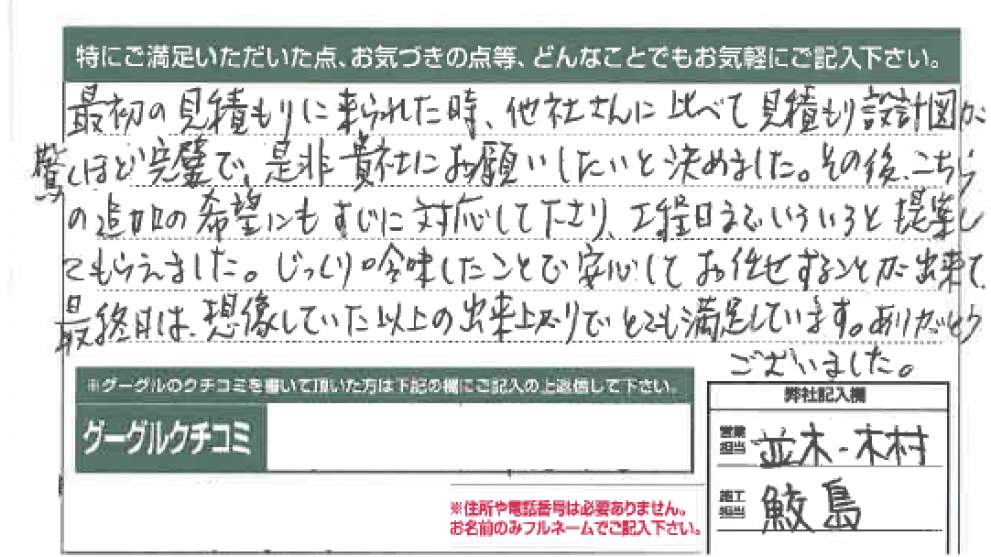 特にご満足いただいた点、お気づきの点等、どんなことでもお気軽にご記入下さい。
最初の見積もりに来られた時、他社さんに比べて見積もり設計図が
驚くほど完璧で、是非貴社にお願いしたいと決めました。その後、こちら
の追加の希望にもすじに対応して下さり、工程日までいろいろと提案し
てもらえました。じっくり吟味したことで安心してお任せすることが出来て
最終日は、想像していた以上の出来上がりでとても満足しています。ありがとう
ございました。
※グーグルのクチコミを書いて頂いた方は下記の欄にご記入の上返信して下さい。
グーグルクチコミ
弊社記入欄
営業担当 並木-木村
施工担当 鮫島
※住所や電話番号は必要ありません。
お名前のみフルネームでご記入下さい。